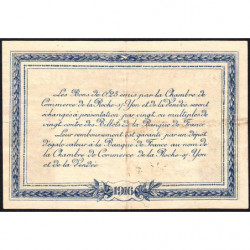 Les Bons de 0f25 émis par la Chambre de
Commerce de la Roche-s-Yon et de la Vendée, seront
échangés à présentation, par vingt ou multiples de
vingt contre des Billets de la Banque de France
Leur remboursement est garanti par un dépôt
d'égale valeur à la Banque de France au nom de
la Chambre de Commerce de la Roche-s-Yon et
de la Vendée
RENNES